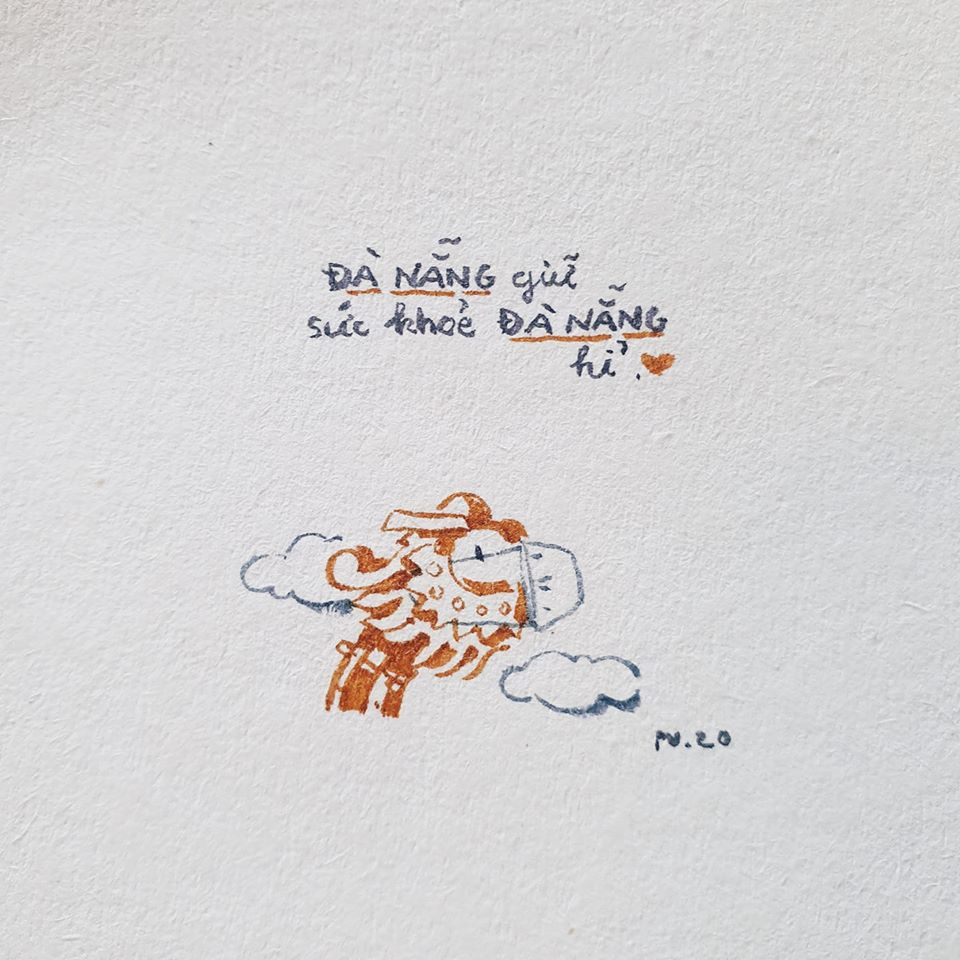 ĐÀ NẴNG giữ
sức khoẻ ĐÀ NẴNG
hỉ.
PV.20